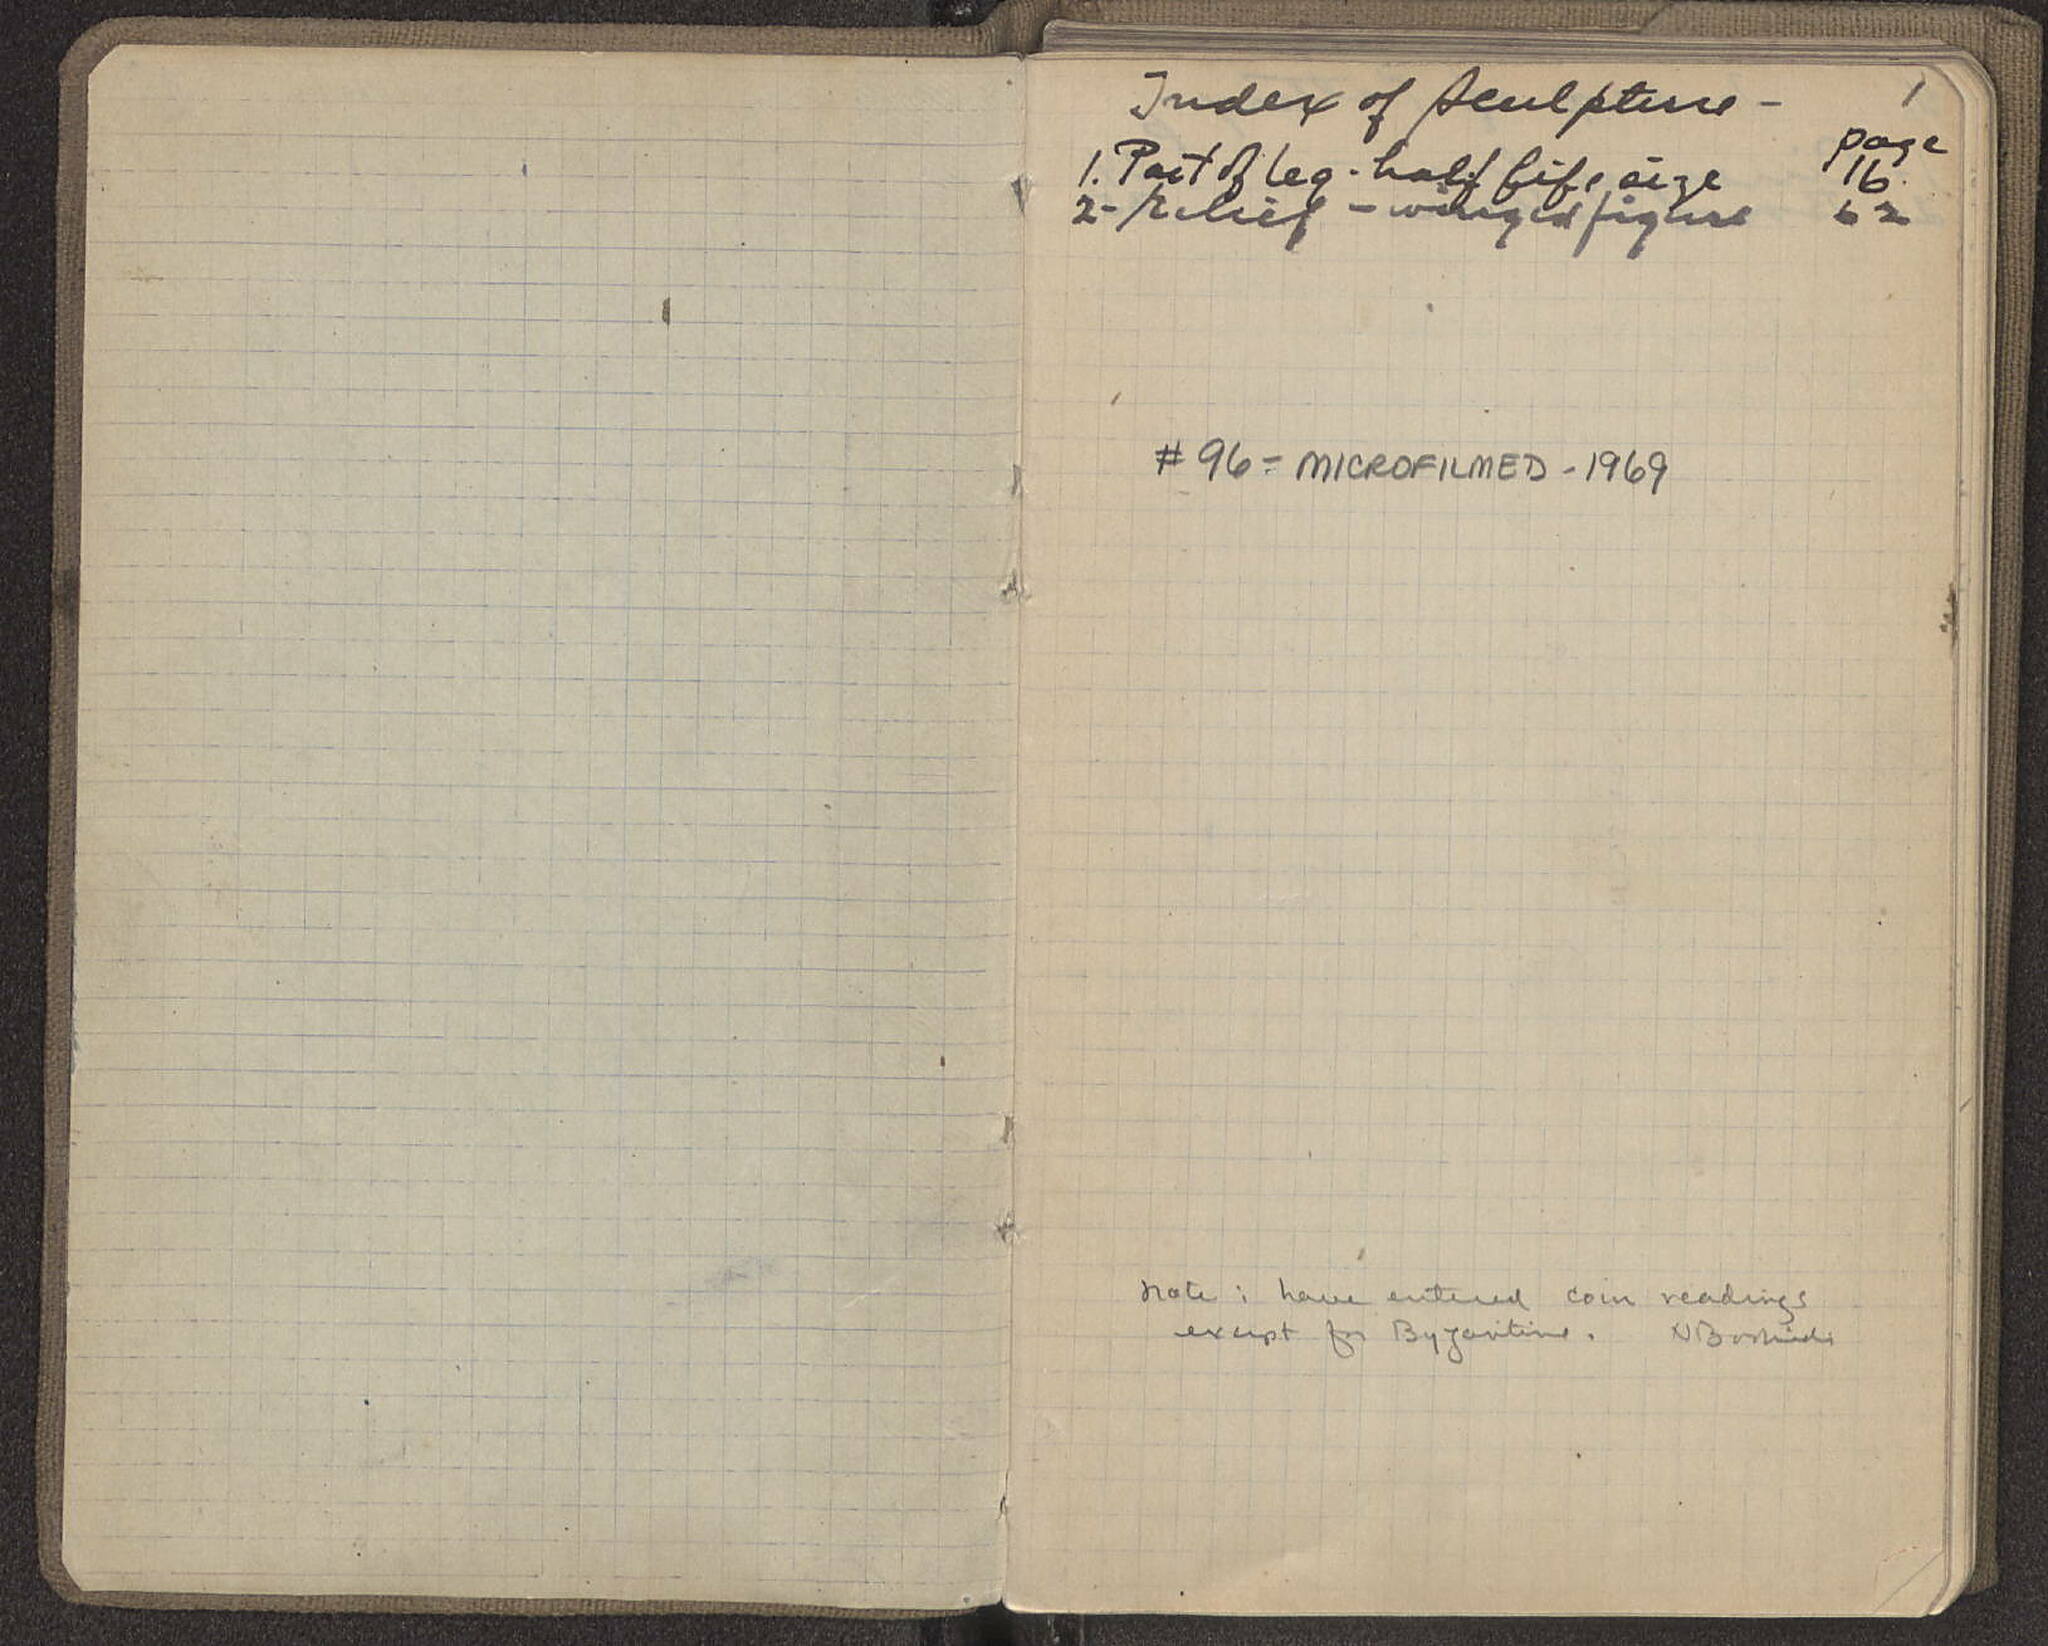 1
Index of Sculpture -
page
1. Part of leg - half life size 16
2 - Relief - winged figure 62
# 96 = MICROFILMED - 1969
Note: have entered coin readings
except for Byzantine. N Bookidis